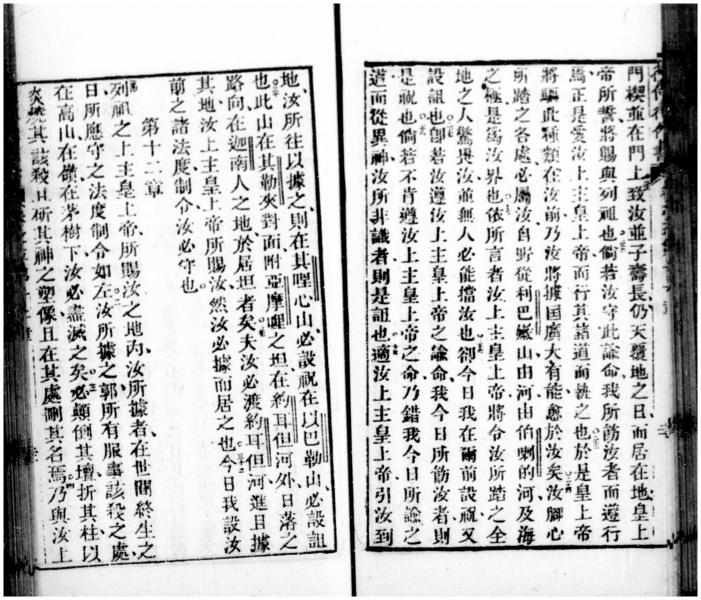 門楔並在門上致汝並子壽長仍天覆地之日而居在地皇上
帝所誓將賜與列祖也倘若汝守此諭命我所飭汝者而遵行
焉正是愛汝上主皇上帝而行其諸道而綣之也於是皇上帝
將驅此種類在汝前乃汝將據国廣大有能愈於汝矣汝腳心
所踏之各處必屬汝自野從利巴嫩山由河由伯喇的河及海
之極是爲汝界也依所言者汝上主皇上帝將令汝所踏之全
地之人驚畏汝並無人必能擋汝也卻今日我在爾前設祝又
設詛也卽若汝遵汝上主皇上帝之諭命我今日所飭汝者則
是祝也倘若不肯遵汝上主皇上帝之命乃錯我今日所諭之
道而從異神汝所非識者則是詛也適汝上主皇上帝引汝到
地汝所往以據之則在其哩心山必設祝在以巴勒山必設詛
也此山在其勒夾對面附亞摩哩之坦在約耳但河外日落之
路向在迦南人之地於居坦者矣夫汝必渡約耳但河進且據
其地汝上主皇上帝所賜汝然汝必據而居之也今日我設汝
前之諸法度制令汝必守也
第十二章
列祖之上主皇上帝所賜汝之地內汝所據者在世間終生之
日所應守之法度制令如左汝所據之郭所有服事該殺之處
在高山在嶺在茅樹下汝必盡滅之矣必顛倒其壇折其柱以
其該殺且斫其神之塑像且在其處刪其名焉乃與汝上